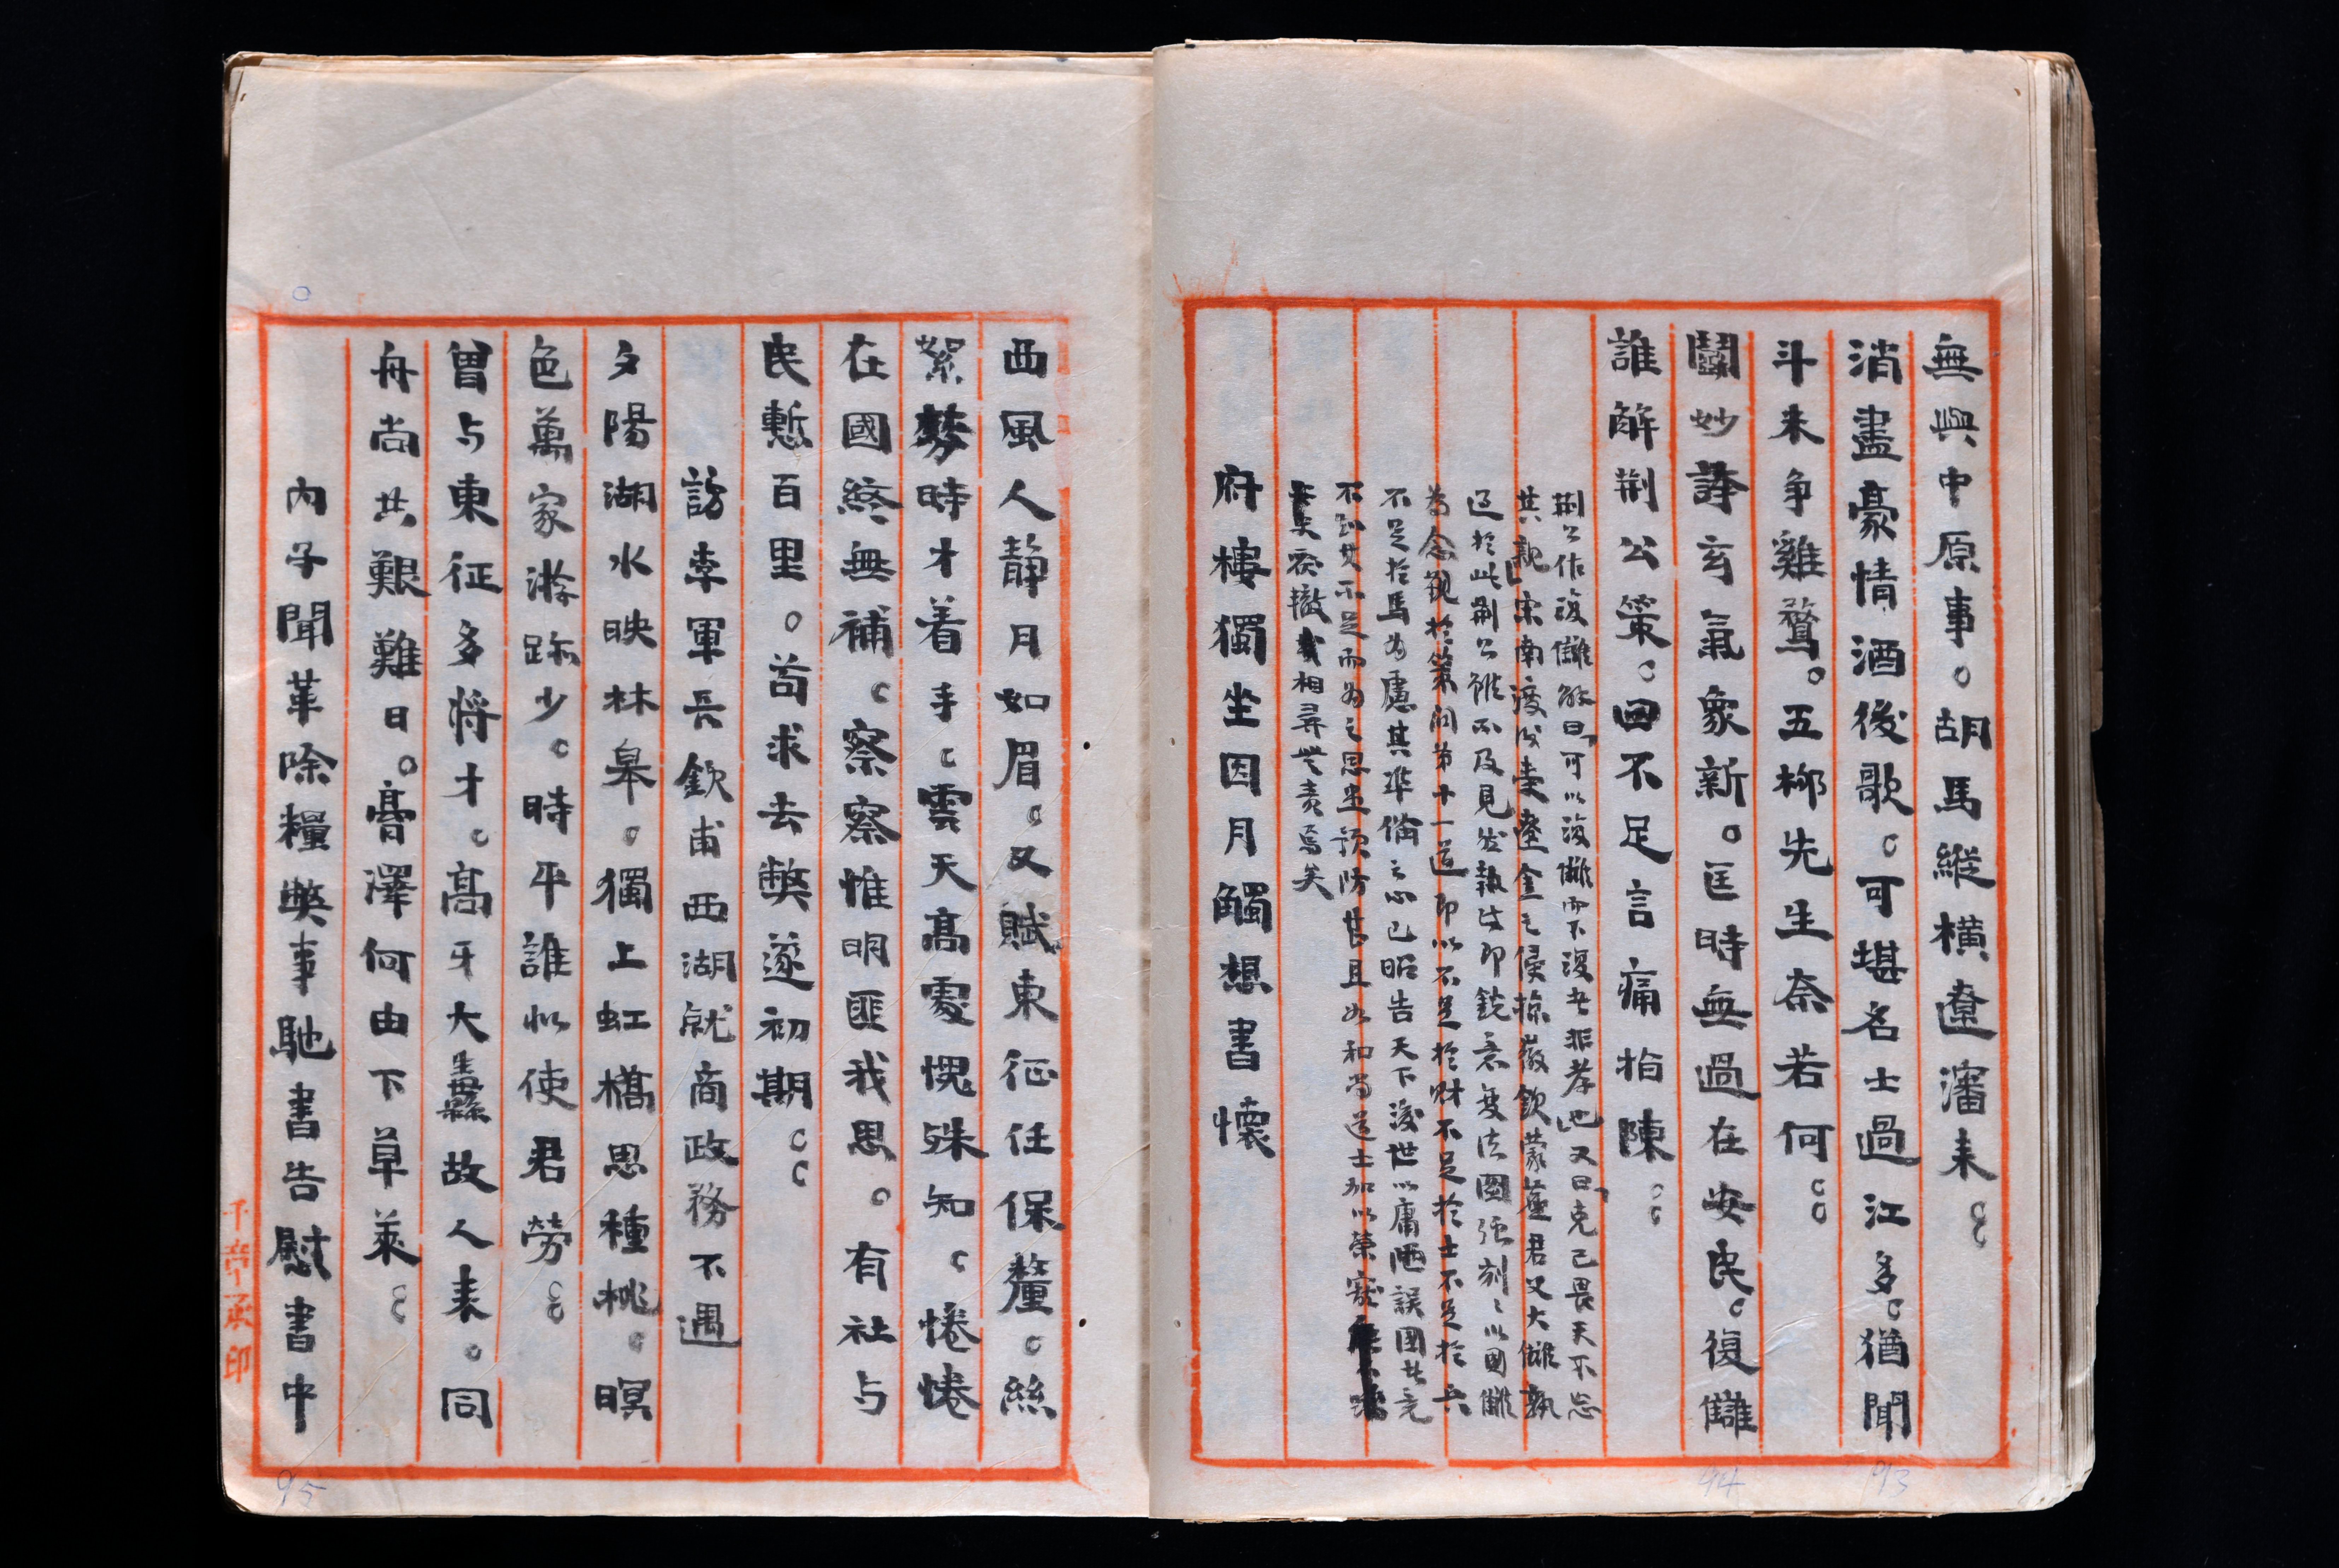 無興中原事。胡馬縱橫遼瀋來。。
消盡豪情酒後歌。可堪名士過江多。猶聞
斗米爭雞鶩。五柳先生奈若何。。
鬬妙誇玄氣象新。匡時無過在安民。復讎
誰解荆公策。回不足言痛指陳。。
荆公作復讎解曰可以復讎而不復者非孝也又曰克己畏天不忘
其親宋南渡後臺金之侵掠徽欽蒙塵君父大讎孰
過於此荆公雖不及見然執政即銳意變法圖强刻〻以國讎
為念觀於策問第十一道即以不足於財不足於士不足於兵
不足於馬為慮其準備之心已昭告天下後世以庸陋誤國者竟
不以其不足而為之思患預防甚且如和尚道士加以榮寵
覆轍相尋誰責焉矣
府樓獨坐因月觸想書懷
西風人靜月如眉。又賦東征任保釐。絲
絮棼時才着手。雲天高處愧殊知。惓惓
在國終無補。察察惟明匪我思。有社与
民慙百里。苟求去弊遂初期。。
訪李軍長欽甫西湖就商政務不遇
夕陽湖水映林皋。獨上虹橋思種桃。暝
色萬家游跡少。時平誰似使君勞。。
曾与東征多將才。高牙大纛故人來。同
舟尚共艱難日。膏澤何由下草萊。。
內子聞革除糧弊事馳書告慰書中
94 93
95